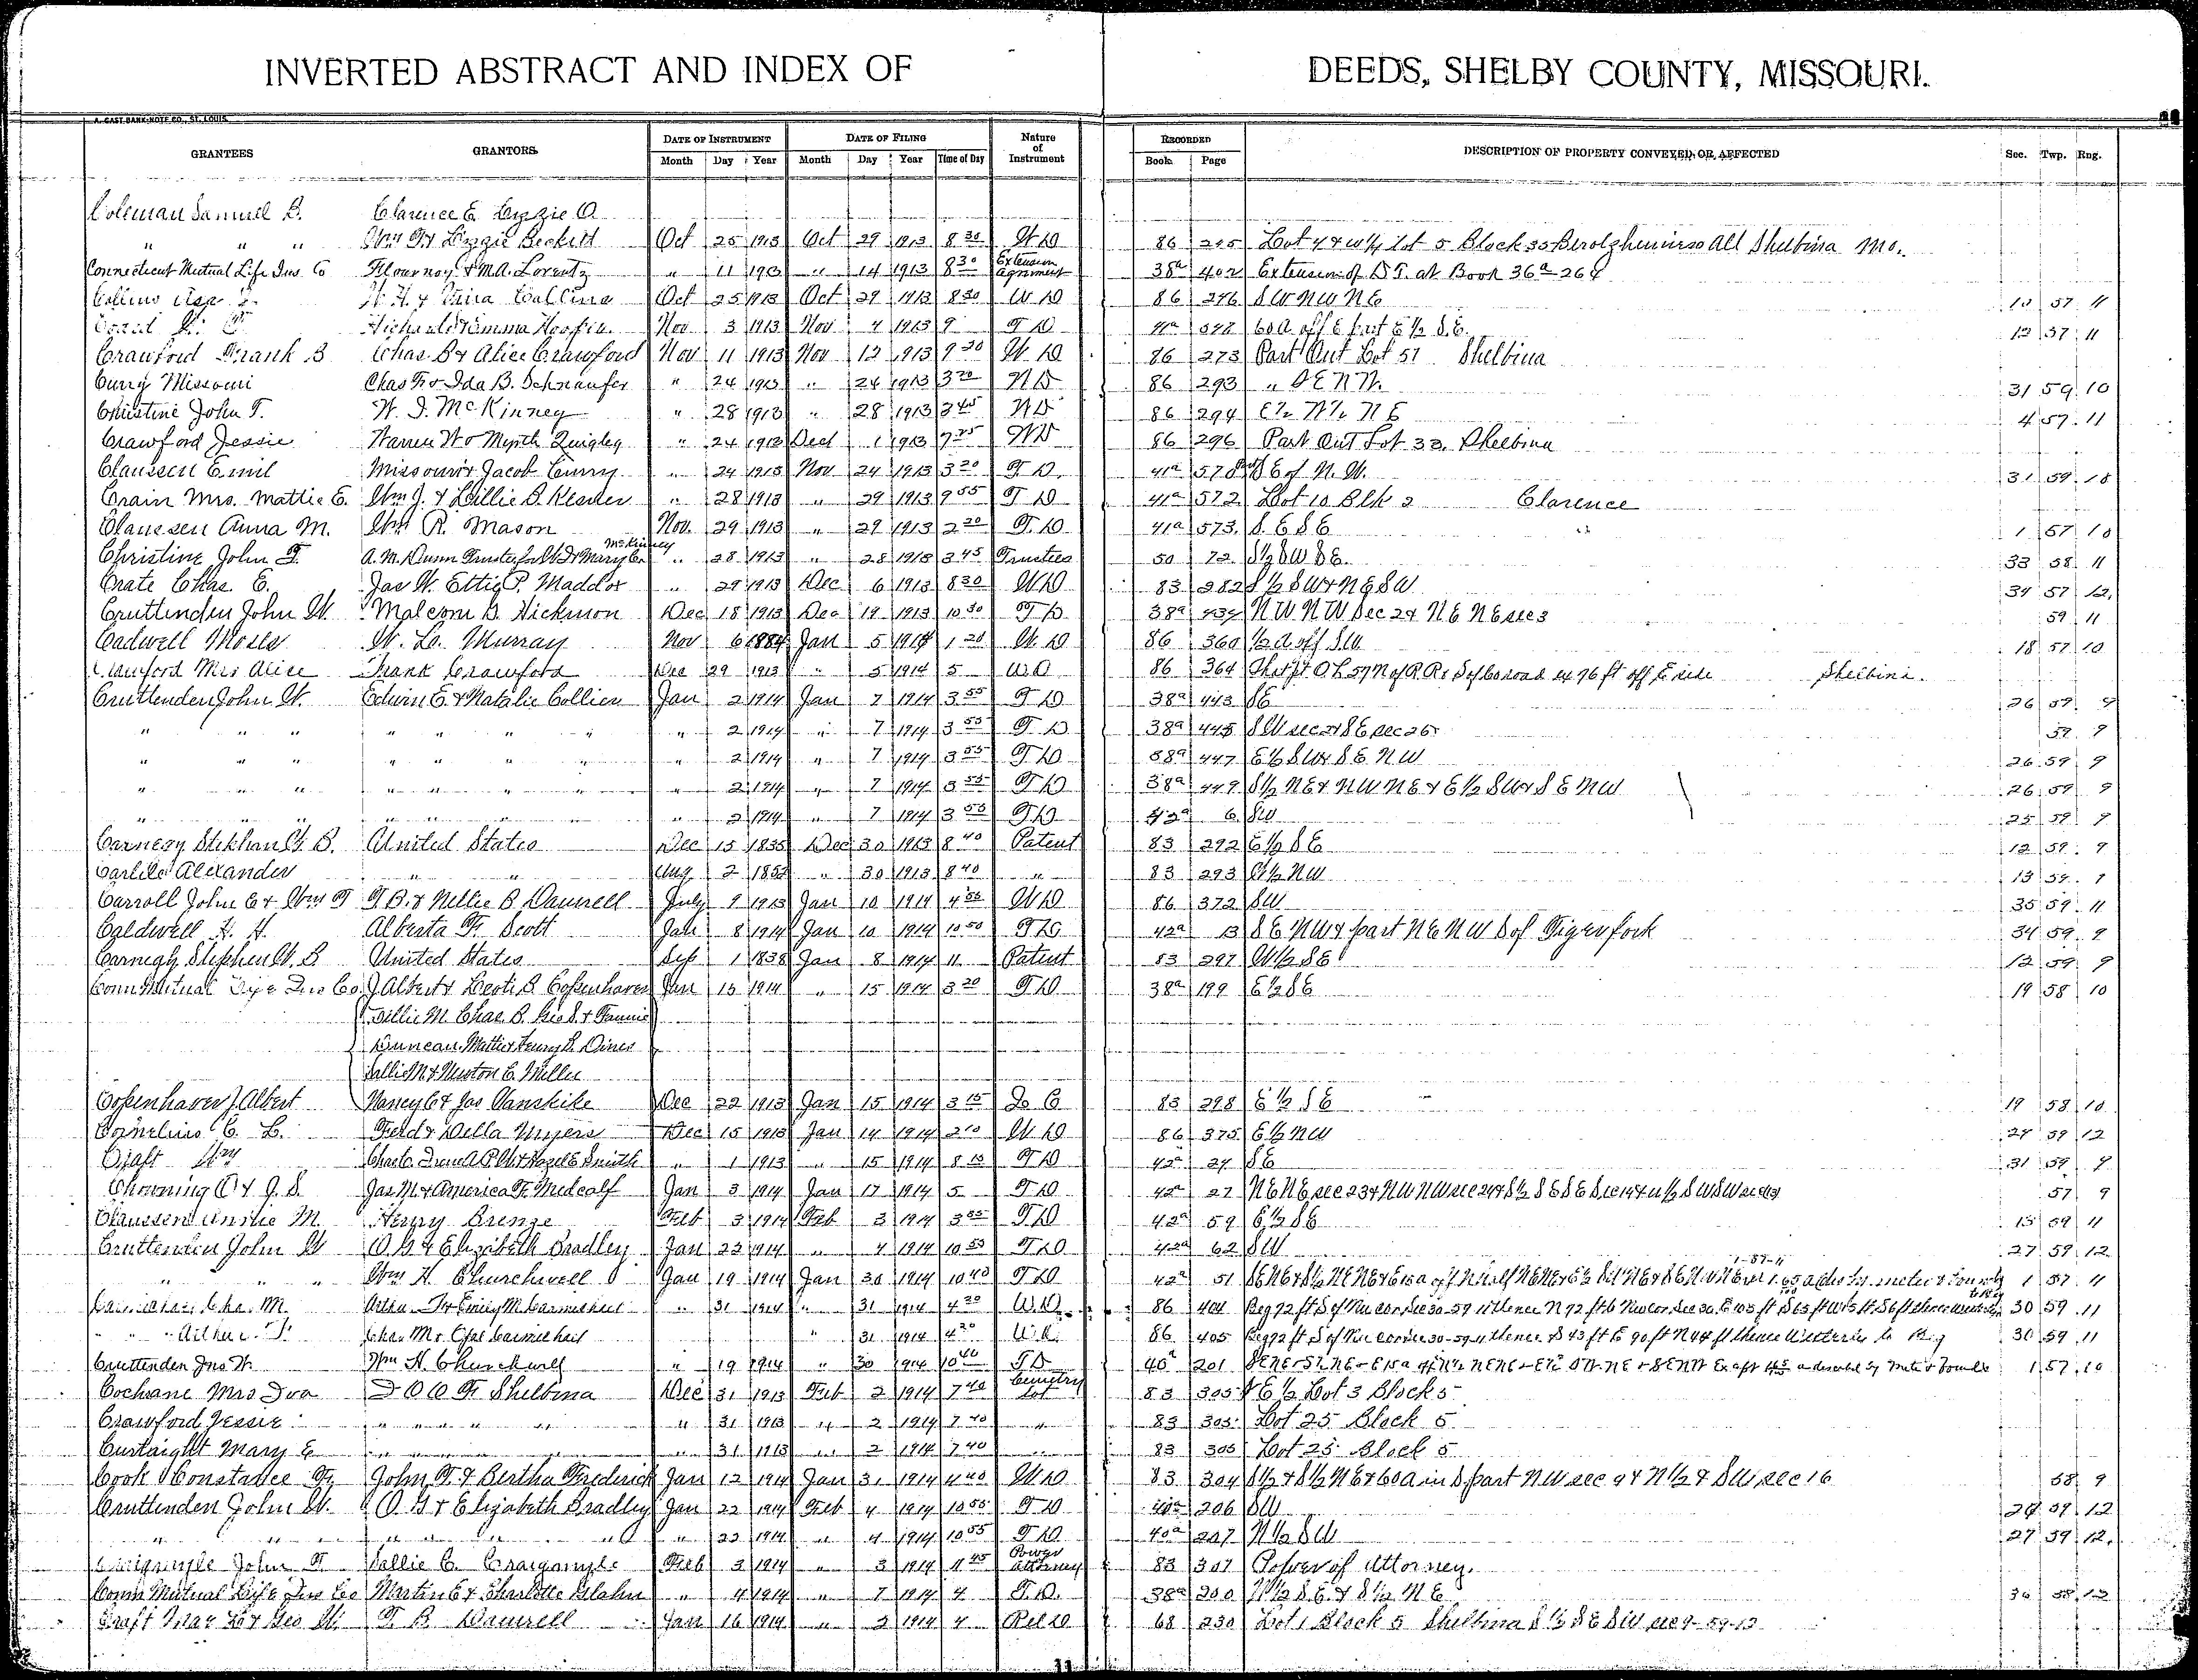 INVERTED ABSTRACT AND INDEX OF DEEDS, SHELBY COUNTY, MISSOURI.
A. GAST BANK NOTE CO., ST. LOUIS.
GRANTEES GRANTORS DATE OF INSTRUMENT DATE OF FILING Nature of Instrument RECORDED DESCRIPTION OF PROPERTY CONVEYED OR AFFECTED Sec. Twp. Rng.
Month Day Year Month Day Year Time of Day Book Page
Coleman Samuel B. Clarence E Lizzie A
" " " Wm T & Lizzie Beckett Oct 25 1913 Oct 29 1913 8 30 W D 86 Lot 4 & W ½ Lot 5 Block 35 All Shelbina Mo.
Connecticut Mutual Life Ins. Co Flournoy & M.A. Lorentz " 11 1913 " 14 1913 8 30 Extension agreement 38a 402 Extension of D.T. at Book 36a 264
Collins W. H. & Collins Oct 25 1913 Oct 29 1913 8 30 W D 86 276 S W N W N E 57 11
& Emma Nov 3 1913 Nov 4 1913 9 T D 41a 60 a. off E part E ½ S.E. 12 57 11
Crawford Frank B Chas. B & Alice Crawford Nov 11 1913 Nov 12 1913 9 20 W D 86 273 Part Out Lot 51 Shelbina
Curry Missouri Chas F & Ida B. Schnaufer " 24 1913 " 24 1913 3 20 W D 86 293 " S E N W. 31 59 10
Christine John T. W. I. McKinney " 28 1913 " 28 1913 3 45 W D 86 294 E ½ N ½ N E 4 57 11
Crawford Jessie Warren W & Myrth Quigley " 24 1913 Dec 1 1913 9 25 W D 86 296 Part Out Lot 33. Shelbina
Claussen Emil Missouri & Jacob Curry " 24 1913 Nov 24 1913 3 20 T D 41a 570 S E of N. W. 31 59 10
Crain Mrs. Mattie E. Wm J. & Lillie D. Kesler " 28 1913 " 29 1913 9 55 T D 41a 572 Lot 10 Blk 2 Clarence
Claussen Anna M. Wm R. Mason Nov. 29 1913 " 29 1913 2 20 T. D 41a 573. S. E S E " 1 57 10
Christine John T. A. M. Dunn Trustee for W I & Mary C. McKinney " 28 1913 " 28 1913 3 45 Trustees 50 72 S ½ S W S E. 33 58 11
Crate Chas. E. Jas W. Ettie P. Maddox " 29 1913 Dec 6 1913 8 30 W D 83 282 S ½ S W & N E S W 34 57 12.
Cruttenden John W. Malcom B. Hickmon Dec 18 1913 Dec 19 1913 10 30 T D 38a 439 N W. N W Sec 24 N E N E sec 3 59 11
Cadwell Moses W. L. Murray Nov 6 1884 Jan 5 1914 1 20 W D 86 360 ½ a off S.W. 18 57 10
Crawford Mrs Alice Frank Crawford Dec 29 1913 " 5 1914 5 W. D 86 364 That pt O L 51 N of R R & S of Co road ex 96 ft off E side Shelbina.
Cruttenden John W. Edwin E. & Natalie Collier Jan 2 1914 Jan 7 1914 3 55 T D 38a 443 S E 26 59 9
" " " " " " " " 2 1914 " 7 1914 3 55 T D 38a 445 S W sec 21 S E sec 26 59 9
" " " " " " " " 2 1914 " 7 1914 3 55 T D 38a 447 E ½ S W & S E N W 26 59 9
" " " " " " " " 2 1914 " 7 1914 3 55 T D 38a 449 S ½ N E & N W N E & E ½ S W & S E N W 26 59 9
" " " " " " " " 2 1914 " 7 1914 3 55 T D 42a 6 S W 25 59 9
Carnegy Stephan W. B. United States Dec 15 1835 Dec 30 1913 8 40 Patent 83 292 E ½ S E 12 59 9
Carlile Alexander " " Aug 2 " 30 1913 8 40 " 83 293 E ½ N W 13 59 9
Carroll John C & Wm T T. B. & Nellie B Damrell July 9 1913 Jan 10 1914 4 55 W D 86 372 S W 35 59 11
Caldwell H. H. Alberta F. Scott Jan 8 1914 Jan 10 1914 10 50 T D 42a 13 S E N W & part N E N W S of Tiger fork 34 59 9
Carnegy Stephen W. B United States Sep 1 1838 Jan 8 1914 11 Patent 83 297 W ½ S E 12 59 9
Conn Mutual Life Ins Co. J Albert & Leota B Copenhaver Jan 15 1914 " 15 1914 3 20 T D 38a 199 E ½ S E 19 58 10
Lillie M Chas. B. Geo S. & Fannie
Duncan Mattie & Henry B. Dines
Sallie M & Weston C. Miller
Copenhaver J Albert Nancy C & Jas Vanskike Dec 22 1913 Jan 15 1914 3 15 Q C 83 298 E ½ S E 19 58 10
Cornelius C. L. Field & Della Myers Dec 15 1913 Jan 14 1914 2 10 W. D 86 375 E ½ N W 24 59 12
Craft Wm Hazel E Smith " 1 1913 " 15 1914 8 15 T D 42a 24 S E 31 59 9
Chowning O & J. S. Jas M. & America F. Medcalf Jan 3 1914 Jan 17 1914 5 T D 42a 27 N E N E sec 23 & N W N W sec 24 & S ½ S E S E Sec 14 & W ½ S W S W sec 13 57 9
Claussen M. Henry Brenze Feb 3 1914 Feb 3 1914 3 55 T D 42a 59 E ½ S E 15 59 11
Cruttenden John W O. G & Elizabeth Bradley Jan 22 1914 " 4 1914 10 55 T D 42a 62 S W 27 59 12
" " " Wm H. Churchwell Jan 19 1914 Jan 30 1914 10 40 T D 42a 51 1-57-11 1 57 11
Cha. M. & Emily M. Carmichael " 31 1914 " 31 1914 4 20 W. D. 86 404 Beg 72 ft S of Nw Cor. Sec 30-59-11 thence N 72 ft to Nw Cor. Sec 30. E 103 ft S 30 59 11
" " Arthur T. Chas. M. & Carmichael " 31 1914 4 20 W. D. 86 405 Beg 92 ft S of Nw Cor Sec 30-59-11 thence S 43 ft E 90 ft N 44 ft thence Westerly to Beg 30 59 11
Cruttenden Jno. W. Wm H. Churchwell " 19 1914 " 30 1914 10 40 T D 40a 201 as described by metes & bounds 1 57 10
Cochrane Mrs Iva I O O F. Shelbina Dec 31 1913 Feb 2 1914 7 40 Cemetry Lot 83 305 E ½ Lot 3 Block 5
Crawford Jessie " " " " " 31 1913 " 2 1914 7 40 " 83 305 Lot 25 Block 5
Curtright Mary E " " " " " 31 1913 " 2 1914 7 40 " 83 305 Lot 25 Block 5
Cook Constance F. John F. & Bertha Frederick Jan 12 1914 Jan 31 1914 4 40 W D 83 304 S ½ & S ½ N E & 60 a in S part N W sec 9 & N ½ & S W sec 16 58 9
Cruttenden John W. O G & Elizabeth Bradley Jan 22 1914 Feb 4 1914 10 55 T D 40a 206 S W 27 59 12
" " " " " " " " 22 1914 " 4 1914 10 55 T D 40a 207 N ½ S W 27 59 12.
Craigmyle John T Sallie C. Craigmyle Feb 3 1914 " 3 1914 11 45 Power Attorney 83 307 Power of Attorney.
Conn Mutual Life Ins Co Martin C & Charlotte " 4 1914 " 7 1914 4 T. D. 38a 200 N ½ S. E. & S ½ N. E 36 58 12
Craft & Geo W. T. B. Damrell Jan 16 1914 " 2 1914 4 Rel D 68 230 Lot 1 Block 5 Shelbina S ½ S E S W sec 9-59-12